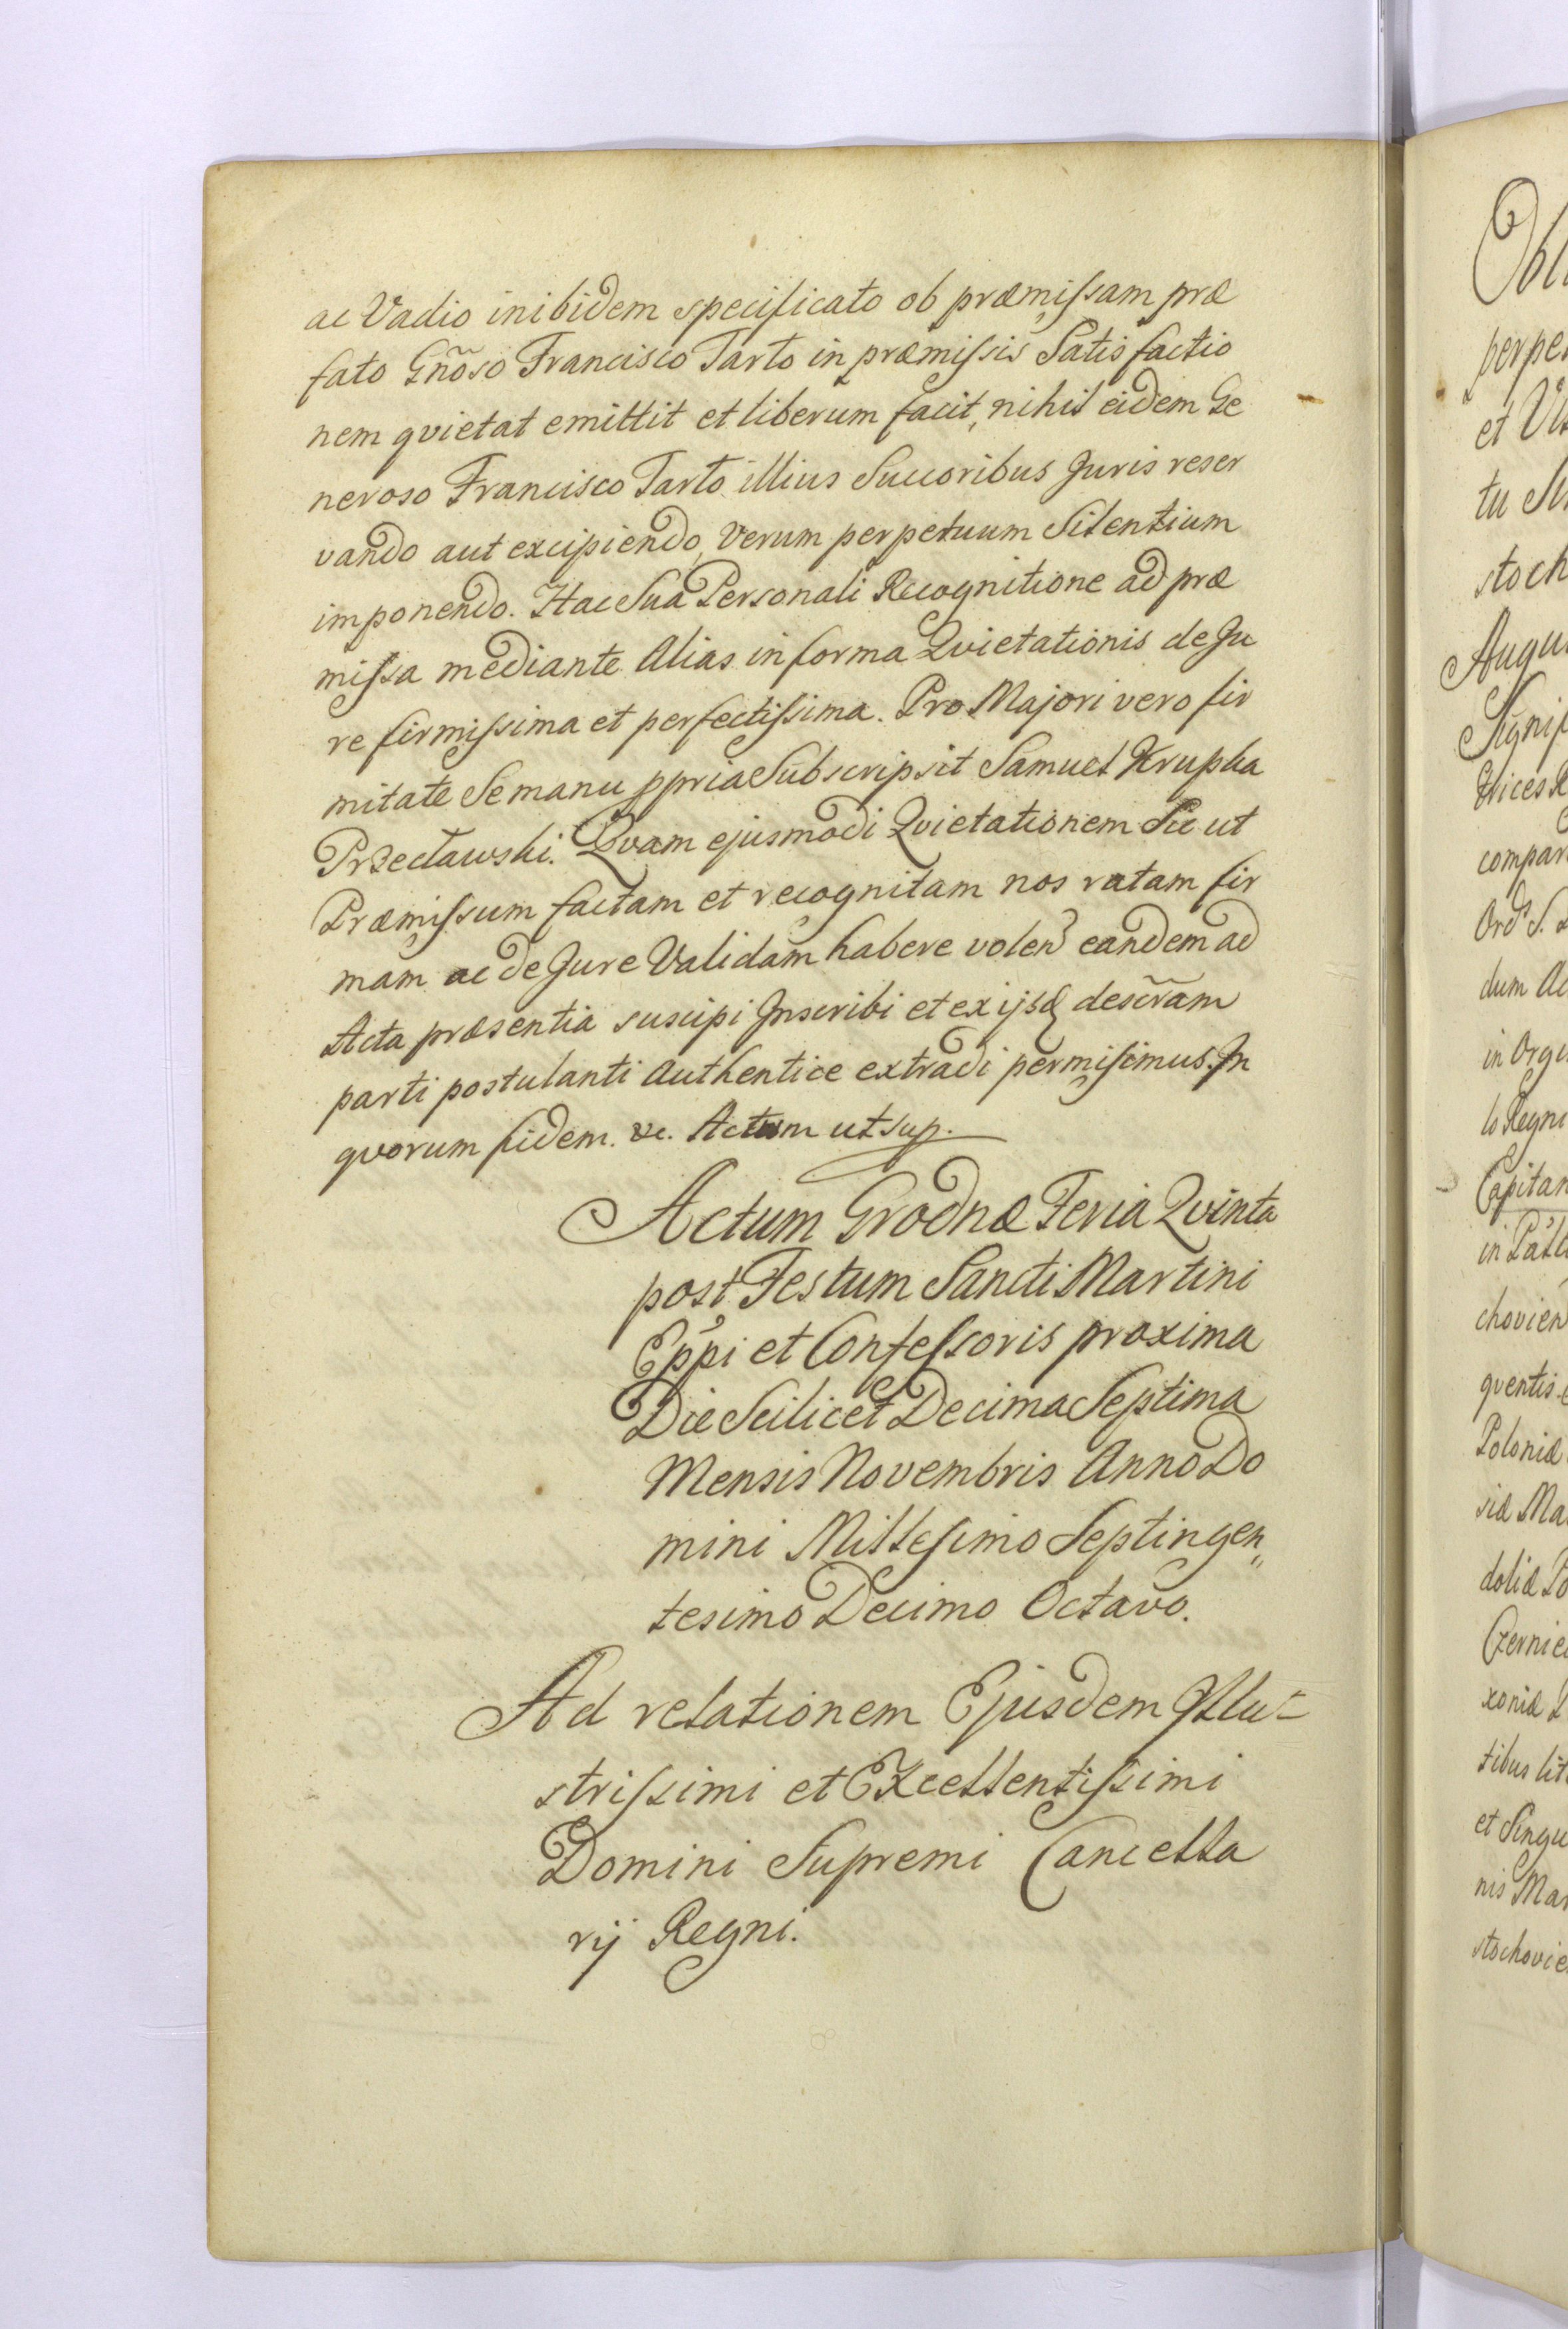 ac Vadio inibidem specificato ob præmissam præ
fato Gñoso Francisco Tarto in præmissis Satis factio
nem qvietat emittit et liberum facit, nihil eidem Ge
neroso Francisco Tarto illius Succoribus Juris reser
vando aut excipiendo, Verum perpetuum Silentium
imponendo. Hac Sua Personali Recognitione ad præ
missa mediante Alias in forma Qvietationis de Ju
re firmissima et perfectissima. Pro Majori vero fir
mitate Se manu ppria Subscripsit Samuel Krupka
Przecławski. Qvam ejusmodi Qvietationem Sic ut
Præmissum factam et recognitam nos ratam fir
mam ac de Jure Validam habere volen eandem ad
Acta præsentia suscipi Inscribi et ex ijsq descr̃am
parti postulanti Authentice extradi permisimus. In
qvorum fidem. &c. Actum ut sup.
Actum Grodnæ Feria Qvinta
post Festum Sancti Martini
Eppi et Confessoris proxima
Die Scilicet Decima Septima
Mensis Novembris Anno Do
mini Millesimo Septingen„
tesimo Decimo Octavo.
Ad relationem Ejusdem Illu=
strissimi et Excellentissimi
Domini Supremi Cancella
rij Regni.
Obl
perpe
et Vis
tu
stoch
Augu
Signif
compar
Ord S.
dum Ac
in Orgi
lo Regni
Capitan
chovien
qventis
Poloniæ
siæ Ma
doliæ Po
Czernie
xoniæ
tibus lit
et Singu
nis Mar
stochovie